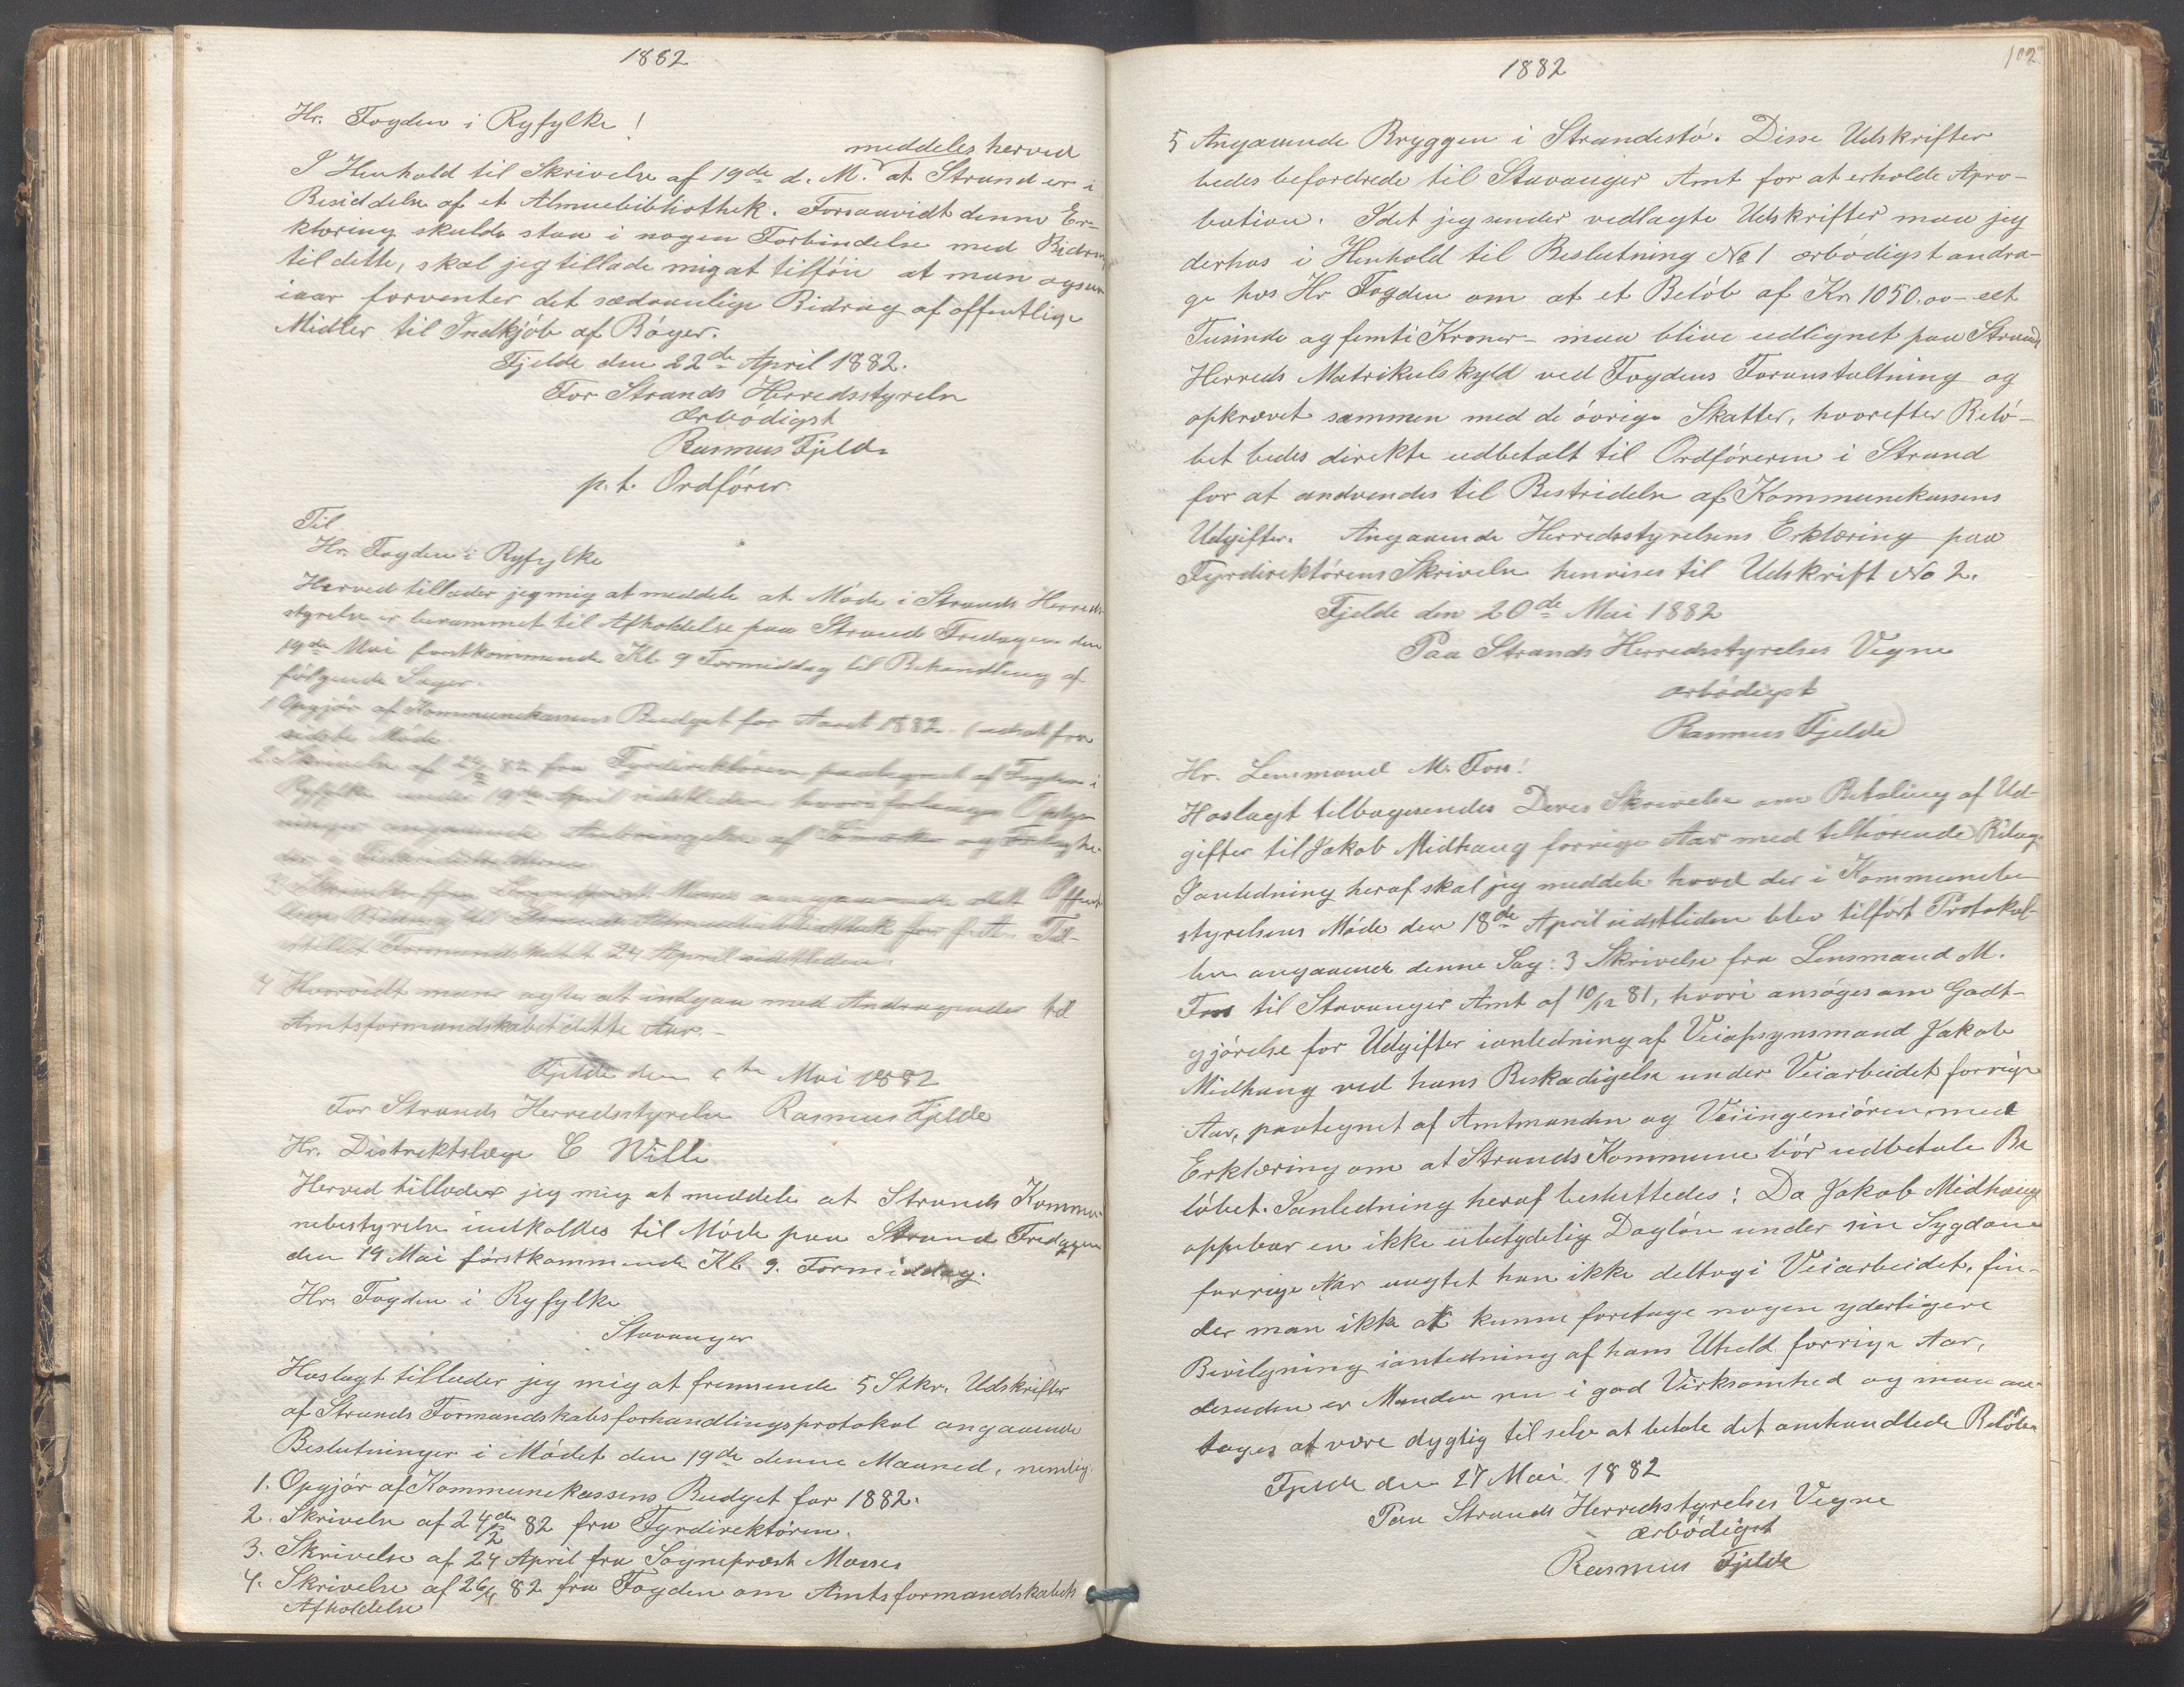 1882
Hr. Fogden i Ryfylke!
meddeles herved
I Henhold til Skrivelse af 19de d. M. at Strand er i
Besiddelse af et Almuebibliothek. Forsaavidt denne Er-
klæring skulde staa i nogen Forbindelse med Bidrag
til dette, skal jeg tillade mig at tilföie at man ogsaa
iaar forventer det sædvanlige Bidrag af offentlige
Midler til Indkjöb af Böger.
Fjelde den 22de April 1882.
For Strands Herredsstyrelse
Ærbödigst
Rasmus Fjelde
p. t. Ordförer.
Til
Hr. Fogden i Ryfylke
Herved tillader jeg mig at meddele at Möde i Strands Herreds-
styrelse er berammet til Afholdelse paa Strand Fredagen den
19de Mai förstkommende Kl. 9 Formiddag til Behandling af
fölgende Sager.
1 Opgjör af Kommunekassens Budget for Aaret 1882 (udsat fra
sidste Möde
2. Skrivelse af 24/2 82 fra Fyrdirektören paategnet af Fogden i
Ryfylke under 19de April sidstleden hvori forlanges Oplys-
ninger angaaende Anbringelse af og
3 Skrivelse fra Sogneprest Monses angaaende det Offent-
lige Bidrag til Strands Almuebibliothek for
Formandskabet 24 April sidstleden.
4 Hvorvidt man agter at indgaa med Andragender til
Amtsformandskabet dette Aar.-
Fjelde den 6te Mai 1882
For Strands Herredsstyrelse Rasmus Fjelde
Hr. Distriktslæge C Wille
Herved tillader jeg mig at meddele at Strands Kommu-
nebestyrelse indkaldes til Möde paa Strand Fredagen
den 19 Mai förstkommende Kl. 9. Formiddag.
Hr. Fogden i Ryfylke
Stavanger
Hoslagt tillader jeg mig at fremsende 5 Stkr. Udskrifter
af Strands Formandskabsforhandlingsprotokol angaaende
Beslutninger i Mödet den 19de denne Maaned, nemlig.
1. Opgjör af Kommunekassens Budget for 1882.
2. Skrivelse af 24de/2 82 fra Fyrdirektören.
3. Skrivelse af 24 April fra Sogneprest Monses
4. Skrivelse af 26/4 82 fra Fogden om Amtsformandskabets
Afholdelse
1882
102
5 Angaaende Bryggen i Strandestö. Disse Udskrifter
bedes befordrede til Stavanger Amt for at erholde Apro-
bation. Idet jeg sender vedlagte Udskrifter maa jeg
derhos i Henhold til Beslutning No 1 ærbödigst andra-
ge hos Hr Fogden om at et Belöb af Kr 1050.00 - eet
Tusinde og femti Kroner - maa blive udlignet paa Strand
Herreds Matrikulskyld ved Fogdens Foranstaltning og
opkrævet sammen med de övrige Skatter, hvorefter Belö-
bet bedes direkte udbetalt til Ordföreren i Strand
for at andvendes til Bestridelse af Kommunekassens
Udgifter. Angaaende Herredsstyrelsens Erklæring paa
Fyrdirektörens Skrivelse henvises til Udskrift No 2.
Fjelde den 20de Mai 1882
Paa Strands Herredsstyrelses Vegne
ærbödigst
Rasmus Fjelde
Hr. Lensmand M. Foss!
Hoslagt tilbagesendes Deres Skrivelse om Betaling af Ud-
gifter til Jakob Midhaug forrige Aar med tilhörende Bilag.
Ianledning heraf skal jeg meddele hvad der i Kommunebe-
styrelsens Möde den 18de April sidstleden blev tilfört Protokol-
len angaaende denne Sag: 3 Skrivelse fra Lensmand M.
Foss til Stavanger Amt af 10/12 81, hvori ansöges om Godt-
gjörelse for Udgifter ianledning af Veiopsynsmand Jakob
Midhaug ved hans Beskadigelse under Veiarbeidet forrige
Aar, paategnet af Amtmanden og Veiingeniören med
Erklæring om at Strands Kommune bör udbetale Be
löbet. Ianledning heraf besluttedes: Da Jakob Midhaug
oppebar en ikke ubetydelig Daglön under sin Sygdom
forrige Aar uagtet han ikke deltog i Veiarbeidet, fin-
der man ikke at kunne foretage nogen yderligere
Bevilgning ianledning af hans Uheld forrige Aar,
desuden er Manden nu i god Virksomhed og maa an-
tages at være dygtig til selv at betale det omhandlede Belöb.
Fjelde den 27 Mai 1882
Paa Strands Herredsstyrelses Vegne
ærbödigst
Rasmus Fjelde